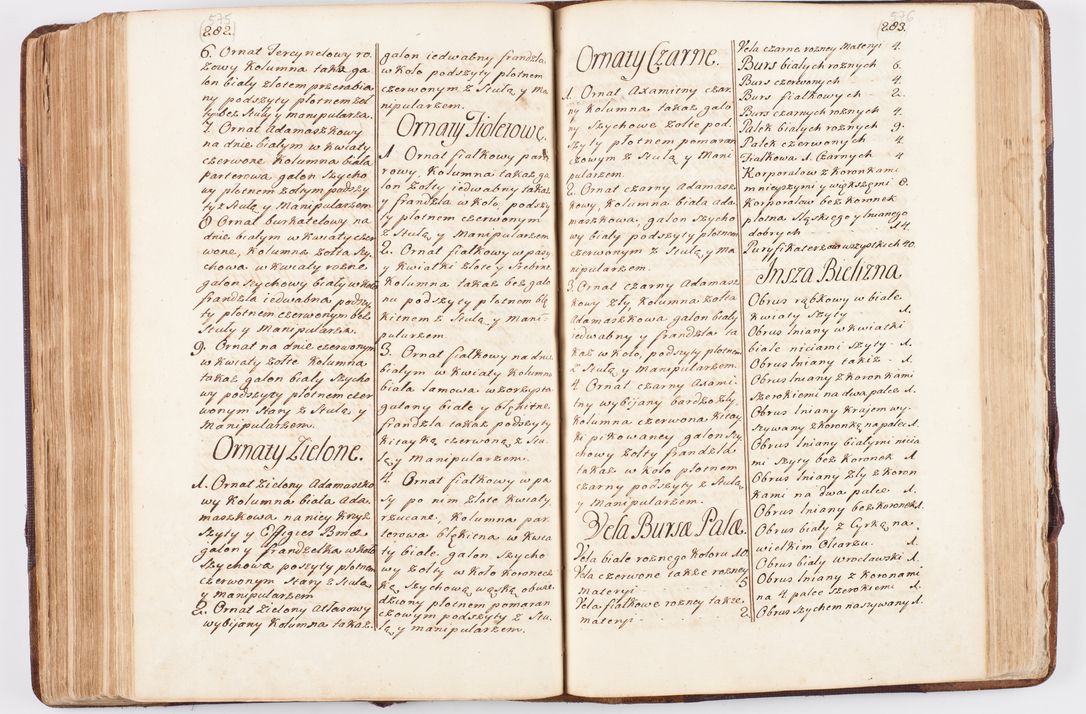 575
282.
6. Ornat Tercynelowy ro-
zowy Kolumna takaz ga
lon biały złotem przerabia
ny podszyty płotnem żoł
tym bez Stuły y manipularza.
7. Ornat Adamaszkowy
na dnie białym w kwiaty
czerwone Kolumna biała
Parterowa galon Szycho
wy płotnem żołtym podszy
ty z Stułą y Manipularzem
8 Ornat burkatelowy na
dnie białym w kwiaty czer
wone, Kolumna żołta Szy-
chowa w kwiaty rożne
galon Szychowy biały w koło
frandzla iedwabna podszy
ty płotnem czerwonym bez
Stuły y Manipularza.
9. Ornat na dnie czerwonym
w kwiaty żołte Kolumna
takaz galon biały Szycho
wy podszyty płotnem czer
wonym Stary z Stułą y
Manipularzem.
Ornaty Zielone.
1. Ornat Zielony Adamaszko
wy Kolumna biała Ada-
maszkowa na niey Krzyz
Szyty y Effigies Bmæ
galony frandzelka w koło
Szychowa poszyty płotnem
czerwonym Stary z Stułą
y manipularzem
2. Ornat Zielony Atłasowy
wybijany Kolumna takaz
galon iedwabny frandzla
w koło podszyty płotnem
czerwonym z Stułą y Ma
nipularzem.
Ornaty Fioletowe.
1 Ornat fiałkowy parte
rowy, Kolumna takaz ga
lon żołty iedwabny takaz
y frandzla w koło, podszy
ty płotnem czerwonym
z Stułą y Manipularzem
2. Ornat fiałkowy w pasy
y kwiatki złote y srebrne
Kolumna takaz bez galo
nu podszyty płotnem błę
kitnem z Stułą y mani-
pularzem.
3. Ornat fiałkowy na dnie
białym w kwiaty Kolumna
biała lamowa wzorzysta
galony białe y błękitne
frandzla takaz podszyty
Kitayką czerwoną z Stu-
łą y Manipularzem.
4. Ornat fiałkowy w pa
sy po nim złote kwiaty
rzucane, Kolumna par
terowa błękitna w kwia
ty białe galon Szycho
wy żołty w koło koronecz
ką Szychową wąską obwie
dziony płotnem pomaran
czowym podszyty z Stu
łą y manipularzem.
576
283.
Ornaty Czarne.
1. Ornat Axamitny czar
ny Kolumna takaz galo
ny Szychowe żołte pod
szyty płotnem pomaran
czowym z Stułą y Mani
pularzem.
2. Ornat czarny Adamasz
kowy, Kolumna biała Ada-
maszkowa, galon Szycho
wy biały podszyty płotnem
czerwonym z Stułą y Ma
nipularzem.
3. Ornat czarny Adamasz
kowy zły, Kolumna żołta
Adamaszkowa galon biały
iedwabny y frandzla ta
kaz w koło, podszyty płotnem
z Stułą y Manipularzem.
4. Ornat czarny Axami-
tny wybijany bardzo zły
Kolumna czerwona Kitay
ki pikowaney galon Szy
chowy żołty frandzla
takaz w koło płotnem
czarny podszyty z Stułą
y Manipularzem.
Vela Bursæ Palæ.
Vela białe roznego Koloru 10.
Vela czerwone także rozney
materyi 5
Vela fiałkowe rozney takze.
materyi 2.
Vela czarne rozney Materyi 4.
Burs białych rożnych 6.
Burs czerwonych 4.
Burs fiałkowych 2.
Burs czarnych rożnych 4.
Palek białych rożnych 9.
Palek czerwonych 4
Fiałkowa 1. Czarnych 4
Korporałow z Koronkami
mnieyszymi y większęmi 8.
Korporałow bez koronek
płotna Sląskiego y lnianego
dobrych 14.
Puryfikaterzow wszystkich 40.
Insza Bielizna
Obrus rąbkowy w białe
kwiaty szyty 1.
Obrus lniany w kwiatki
białe niciami szyty 1.
Obrus lniany takiż 1.
Obrus lniany z koronkami
szerokiemi na dwa palce 1.
Obrus lniany krajem wy-
szywany z koronką na palec 1.
Obrus lniany białymi nicia
mi szyty bez koronek 1.
Obrus lniany zły z koron
kami na dwa palce 1.
Obrus lniany bez koronek 1.
Obrus biały z Cyrkę na
wielkim Ołtarzu. 1.
Obrus biały wrocławski 1.
Obrus lniany z koronami
na 4 palce szerokiemi 1.
Obrus szychem naszywany 1.